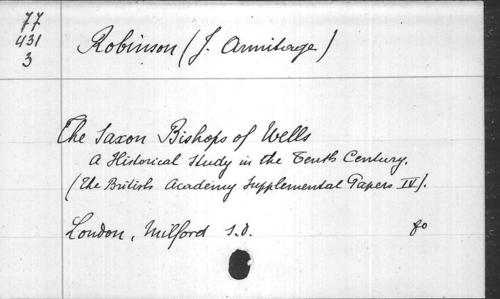 77
431
3
Robinson (J. Armitage)
The Saxon Bishops of Wells
A Historical Study in the Tenth Century.
(The British Academy Supplemental Papers IV).
London, Milford s.d. 8o